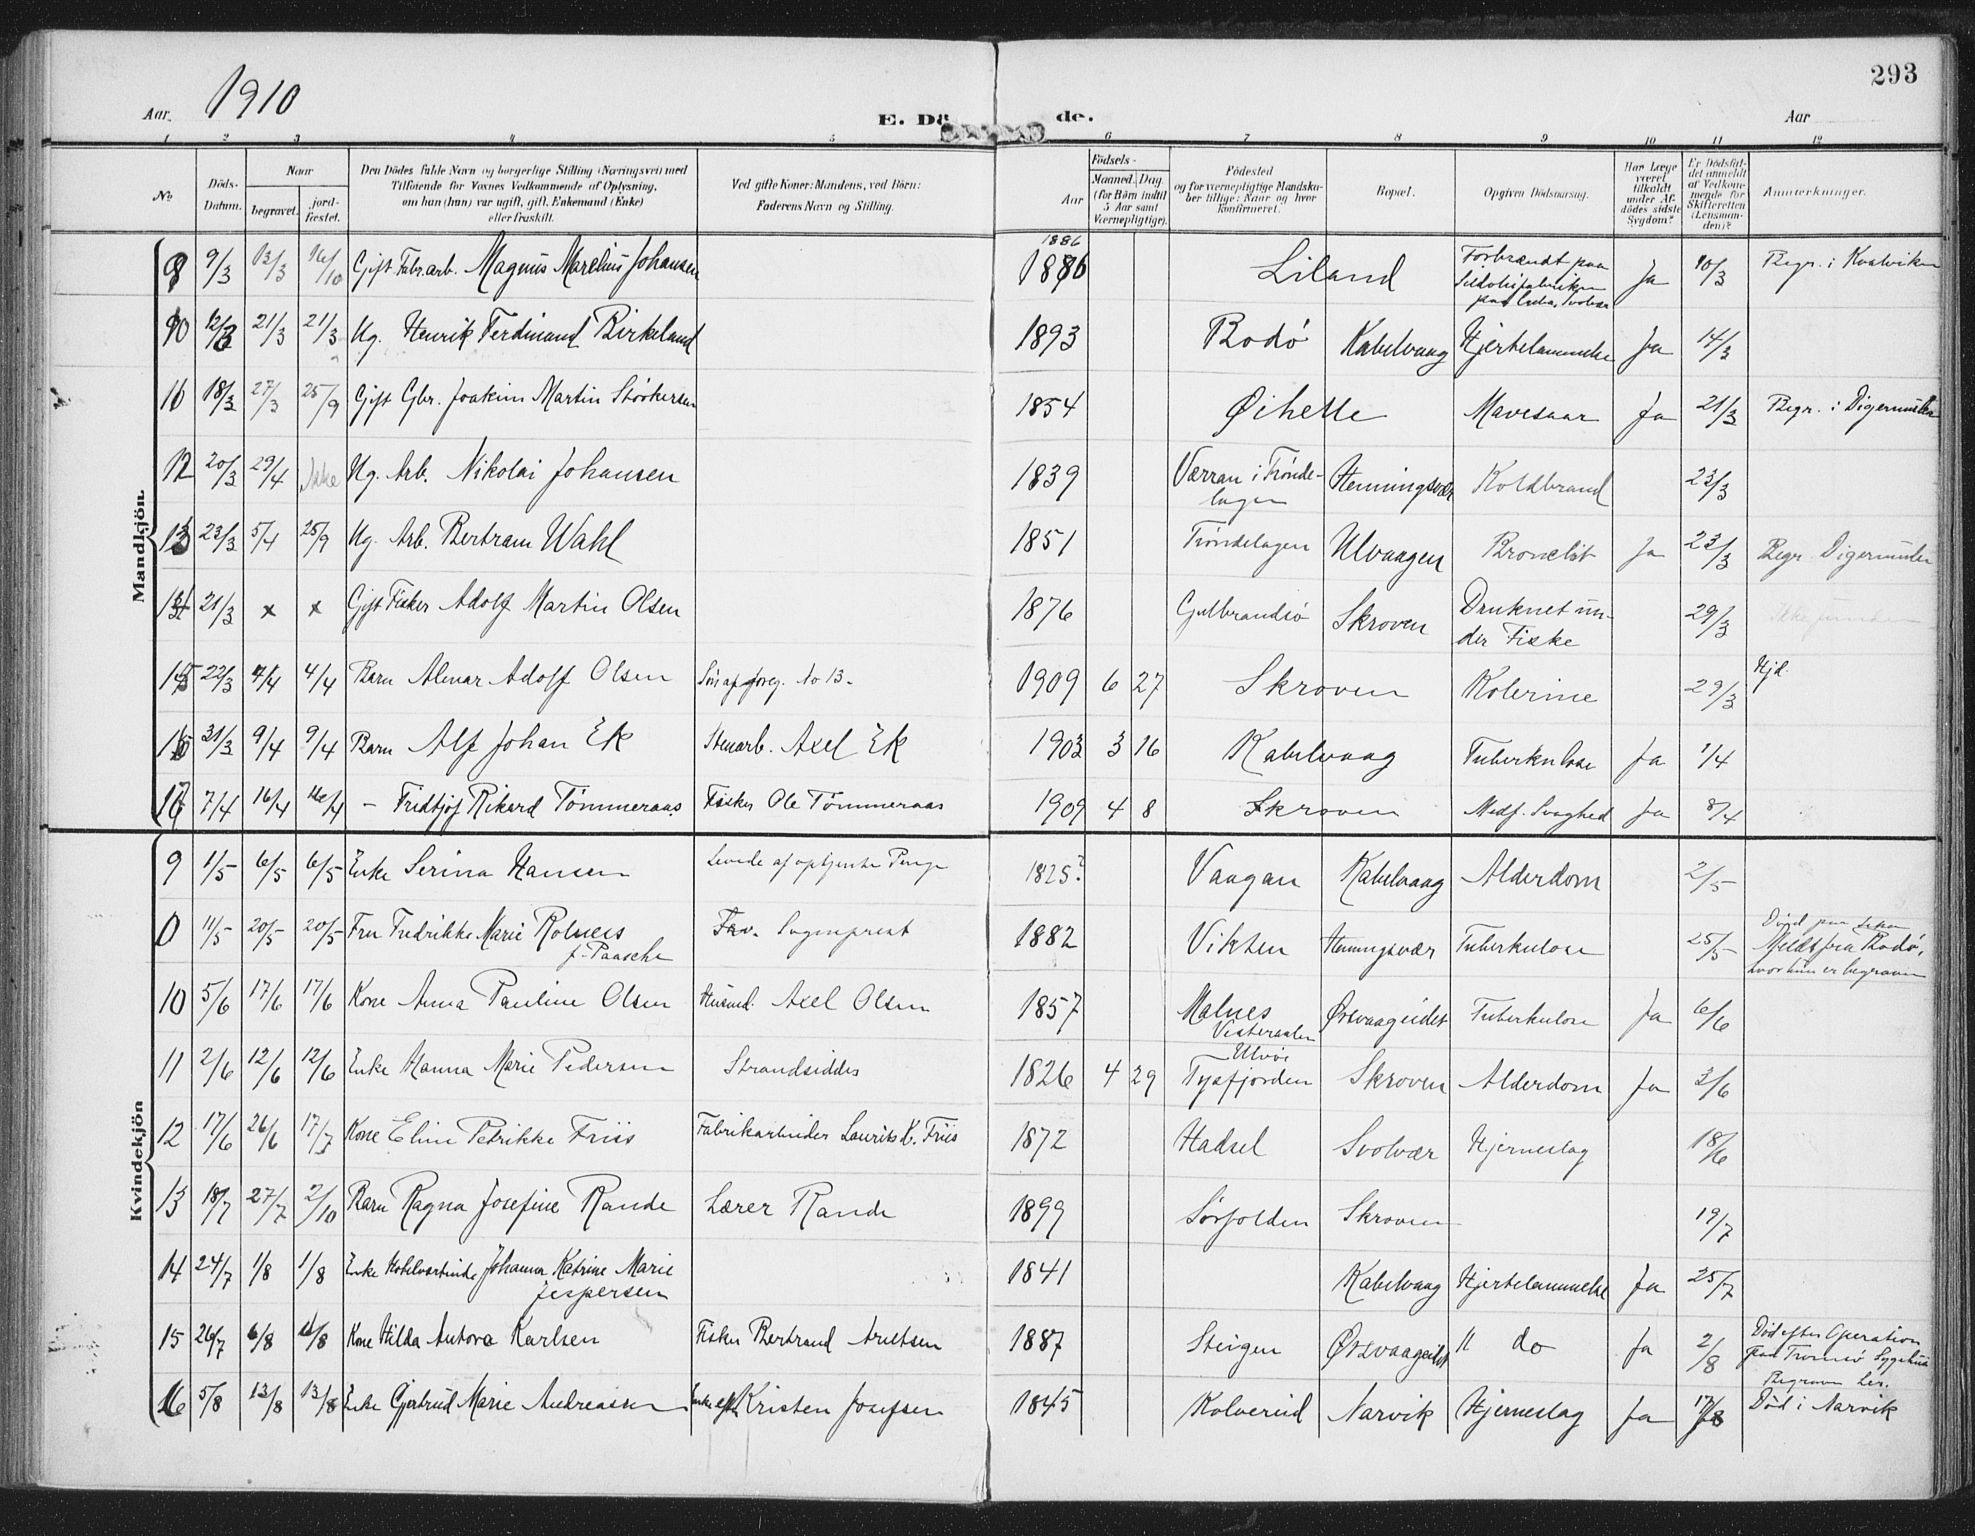 293
Aar 1910
E. Dö de.
Aar
1 2 3 4 5 6 7 8 9 10 11 12
No.
Döds-Datum.
Naar
begravet.
jord-fæstet.
Den Dödes fulde Navn og borgerlige Stilling (Næringsvei) med
Tilföiende for Voxnes Vedkommende af Oplysning,
om han (hun) var ugift, gift, Enkemand (Enke)
eller fraskilt.
Ved gifte Koner: Mandens, ved Börn:
Faderens Navn og Stilling.
Födsels-
Aar
Maaned. Dag
(for Börn indtil
5 Aar samt
Værnepligtige).
Födested
og for værnepligtige Mandska-
ber tillige: Naar og hvor
konfirmeret.
Bopæl.
Opgiven Dödsaarsag.
Har Læge
været
tilkaldt
under Af-
dödes sidste
Sygdom?
Er Dödsfal-
det anmeldt
af Vedkom-
mende for
Skifteretten
(Lensman-
den)?
Anmærkninger.
Mandkjön.
9/3 13/3 16/10 Gift Fabr.arb. Magnus Marelius Johansen 1886 Liland Forbrændt paa Sildoliefabriken paa Cuba, Svolvær Ja 10/3 Begr. i Kvalviken
10 12/3 21/3 21/3 Ug. Henrik Ferdinand Birkeland 1893 Bodø Kabelvaag Hjertelammelse Ja 14/3
18/3 27/3 25/9 Gift Gbr. Joakim Martin Størkersen 1854 Øihelle Mavesaar Ja 21/3 Begr. i Digermulen
12 20/3 29/4 Ikke Ug. Arb. Nikolai Johansen 1839 Værran i Trøndelagen Henningsvær Koldbrand 23/3
13 23/3 5/4 25/9 Ug. Arb. Bertram Wahl 1851 Trøndelagen Ulvaagen Bronchit Ja 23/3 Begr. Digermulen
21/3 x x Gift Fisker Adolf Martin Olsen 1876 Gulbrandsø Skroven Druknet under Fiske 29/3 Ikke funden
22/3 4/4 4/4 Barn Almar Adolf Olsen Søn af foreg. No 13. 1909 6 27 Skroven Kolerine 29/3 Hjd.
31/3 9/4 9/4 Barn Alf Johan Ek Stenarb. Axel Ek 1903 3 16 Kabelvaag Tuberkulose Ja 1/4
7/4 16/4 16/4 – Fridtjof Rikard Tömmeraas Fisker Ole Tömmeraas 1909 4 8 Skroven Medf. Svaghed Ja 8/4
Kvindekjön
9 1/5 6/5 6/5 Enke Serina Hansen Levede af optjente Penge 1825? Vaagan Kabelvaag Alderdom 2/5
0 11/5 20/5 20/5 Fru Fredrikke Marie Rolnees f. Paasche Sogneprest 1882 Vikten Henningsvær Tuberkulose 25/5 Død paa Meldt fra Bodø, hvor hun er begraven
10 5/6 17/6 17/6 Kone Anna Pauline Olsen Husmd. Axel Olsen 1857 Malnes Vesteraalen Østvaageidet Tuberkulose Ja 6/6
11 2/6 12/6 12/6 Enke Hanna Marie Pedersen Strandsidder 1826 4 29 Ulvøe Tysfjorden Skroven Alderdom Ja 3/6
12 17/6 26/6 17/7 Kone Elin Petrikke Friis Fabrikarbeider Laurits K. Friis 1872 Hadsel Svolvær Hjerneslag 18/6
13 18/7 27/7 2/10 Barn Ragna Josefine Rande Lærer Rande 1899 Sørfolden Skroven 19/7
14 24/7 1/8 1/8 Enke Hotelvertinde Johanna Katrine Marie Jespersen 1841 Kabelvaag Hjertelammelse Ja 25/7
15 26/7 6/8 6/8 Kone Hilda Antora Karlsen Fisker Bertrand Arntsen 1887 Steigen Østvaageidet " do Ja 2/8 Død efter Operation paa Tromsø Sygehus Begraven her.
16 5/8 13/8 13/8 Enke Gjertrud Marie Andreassen Enke eft. Kristen Josefsen 1845 Kolvereid Narvik Hjerneslag Ja 17/8 Død i Narvik